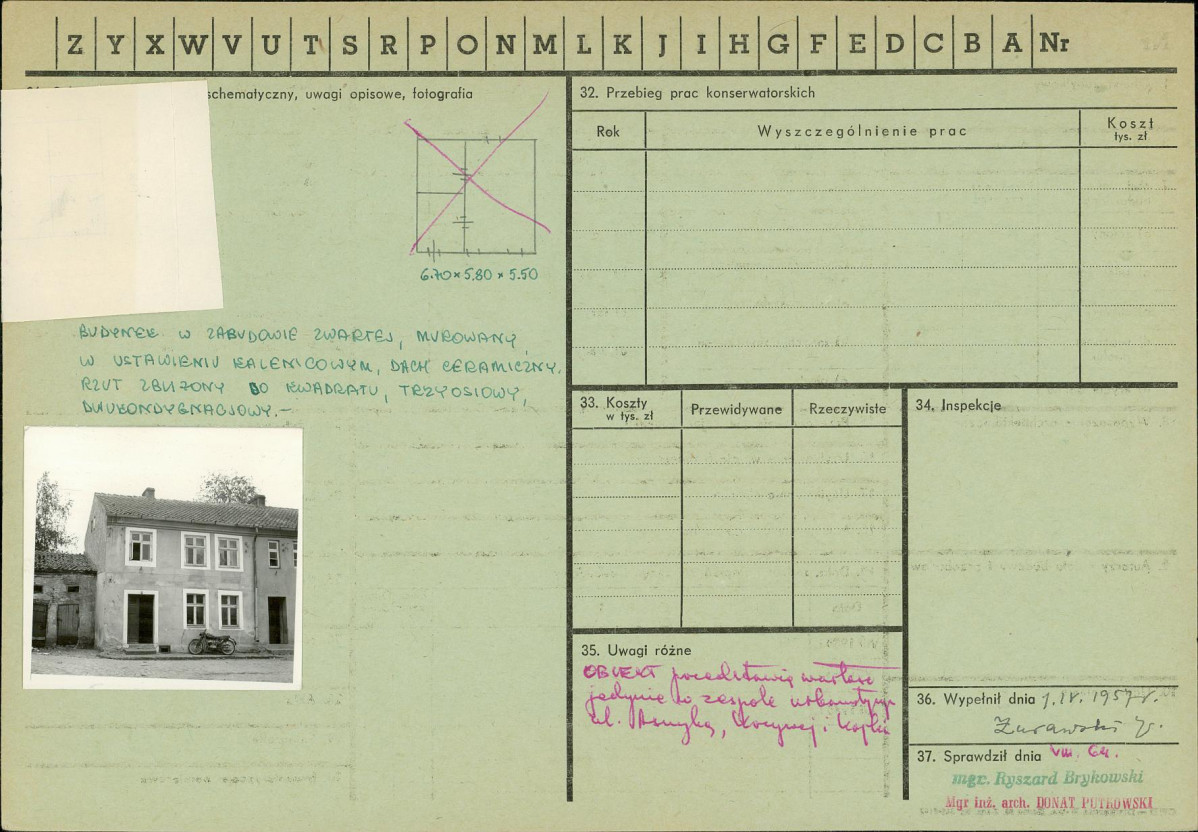 Z Y X W V U T S R P O N M L K J I H G F E D C B A Nr
schematyczny, uwagi opisowe, fotografia
6.70 × 5.80 × 5.50
BUDYNEK W ZABUDOWIE ZWARTEJ, MUROWANY,
W USTAWIENIU KALENICOWYM, DACH CERAMICZNY.
RZUT ZBLIŻONY DO KWADRATU, TRZYOSIOWY,
DWUKONDYGNACJOWY.-
32. Przebieg prac konserwatorskich
Rok
Wyszczególnienie prac
Koszt
tys. zł
33. Koszty
w tys. zł
Przewidywane
Rzeczywiste
34. Inspekcje
35. Uwagi różne
OBIEKT przedstawia wartość
jedynie w zespole urbanistycz
ul. Asnyka, i
36. Wypełnił dnia 1.IV.1957r.
Żurawski J.
37. Sprawdził dnia VIII. 64.
mgr. Ryszard Brykowski
Mgr inż. arch. DONAT PUTKOWSKI